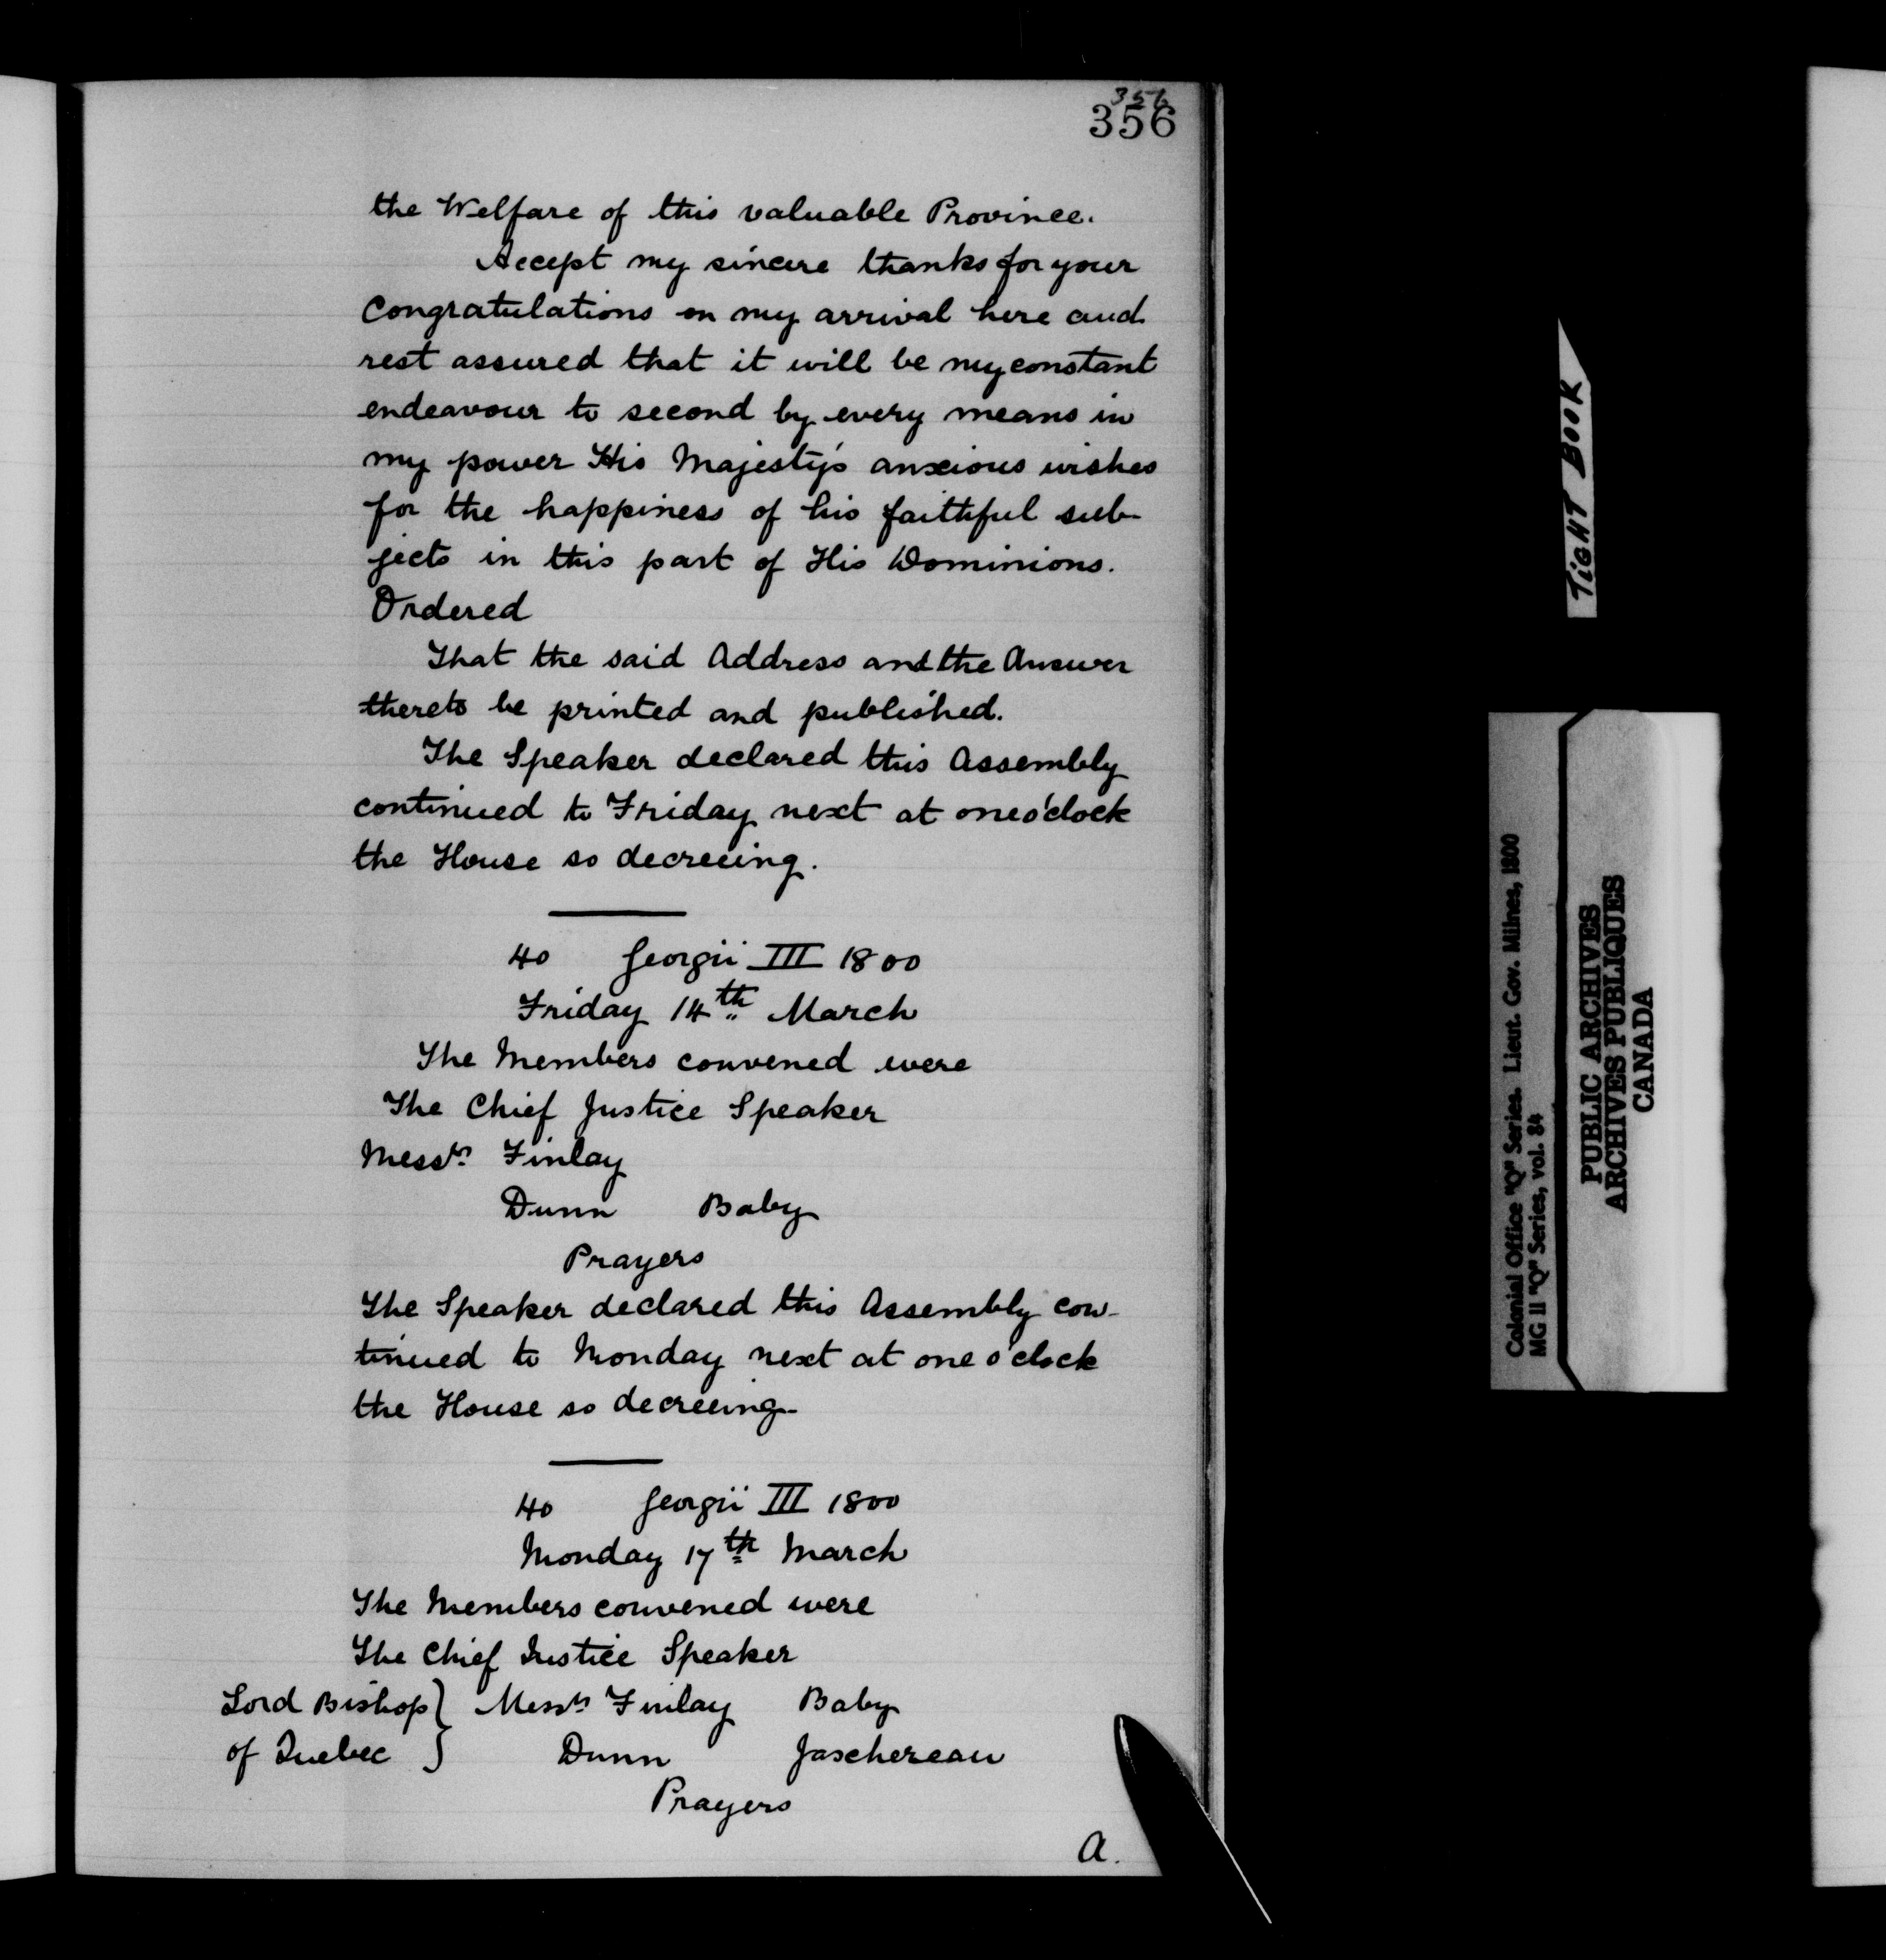 356
356
the Welfare of this valuable Province.
Accept my sincere thanks for your
Congratulations on my arrival here and
rest assured that it will be my constant
endeavour to second by every means in
my power His Majesty's anxious wishes
for the happiness of his faithful sub-
jects in this part of His Dominions.
Ordered
That the said Address and the Answer
thereto be printed and published.
The Speaker declared this Assembly
continued to Friday next at one o'clock
the House so decreeing.
40 Georgii III 1800
Friday 14th March
The Members convened were
The Chief Justice Speaker
Messrs Finlay
Dunn Baby
Prayers
The Speaker declared this Assembly con-
tinued to Monday next at one o'clock
the House so decreeing-
40 Georgii III 1800
Monday 17th March
The Members convened were
The Chief Justice Speaker
Lord Bishop } Messrs Finlay Baby
of Quebec } Dunn Jaschereau
Prayers
A.
TIGHT BOOK
Colonial Office "Q" Series. Lieut. Gov. Milnes, 1800
MG 11 "Q" Series, vol. 84
PUBLIC ARCHIVES
ARCHIVES PUBLIQUES
CANADA